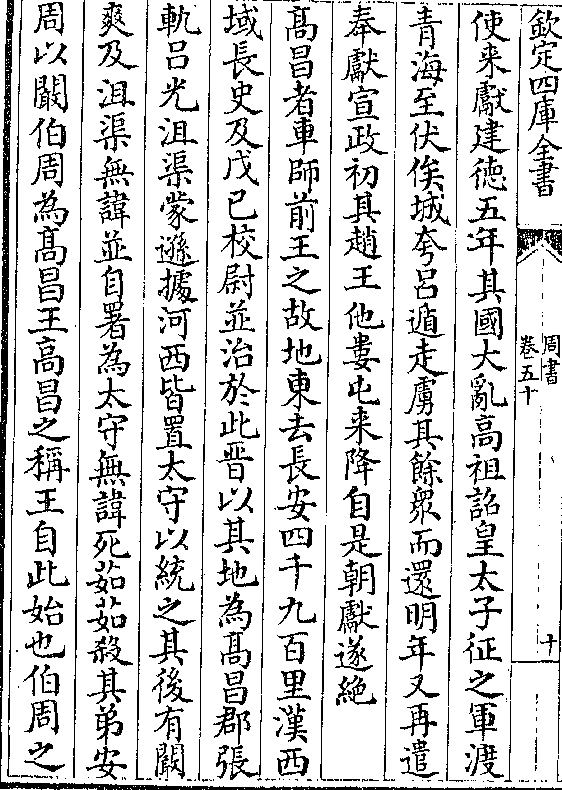 欽定四庫全書
周書
卷五十
十
使来獻建徳五年其國大亂高祖詔皇太子征之軍渡
青海至伏俟城夸呂遁走虜其餘衆而還明年又再遣
奉獻宣政初其趙王他婁屯来降自是朝獻遂絶
髙昌者車師前王之故地東去長安四千九百里漢西
域長史及戊己校尉並治於此晋以其地為髙昌郡張
軌呂光沮渠蒙遜據河西皆置太守以統之其後有闞
爽及沮渠無諱並自署為太守無諱死茹茹殺其弟安
周以闞伯周為髙昌王高昌之稱王自此始也伯周之